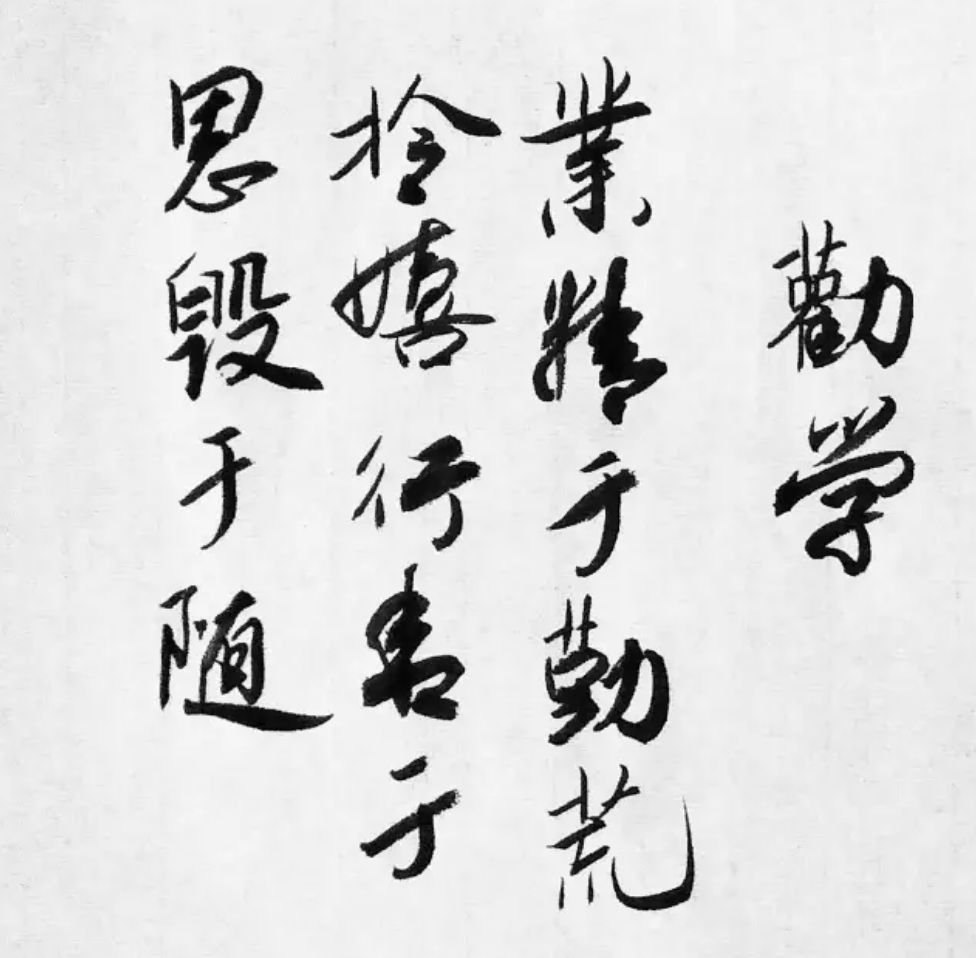 勸学
業精于勤荒
於嬉行于
思毁于随